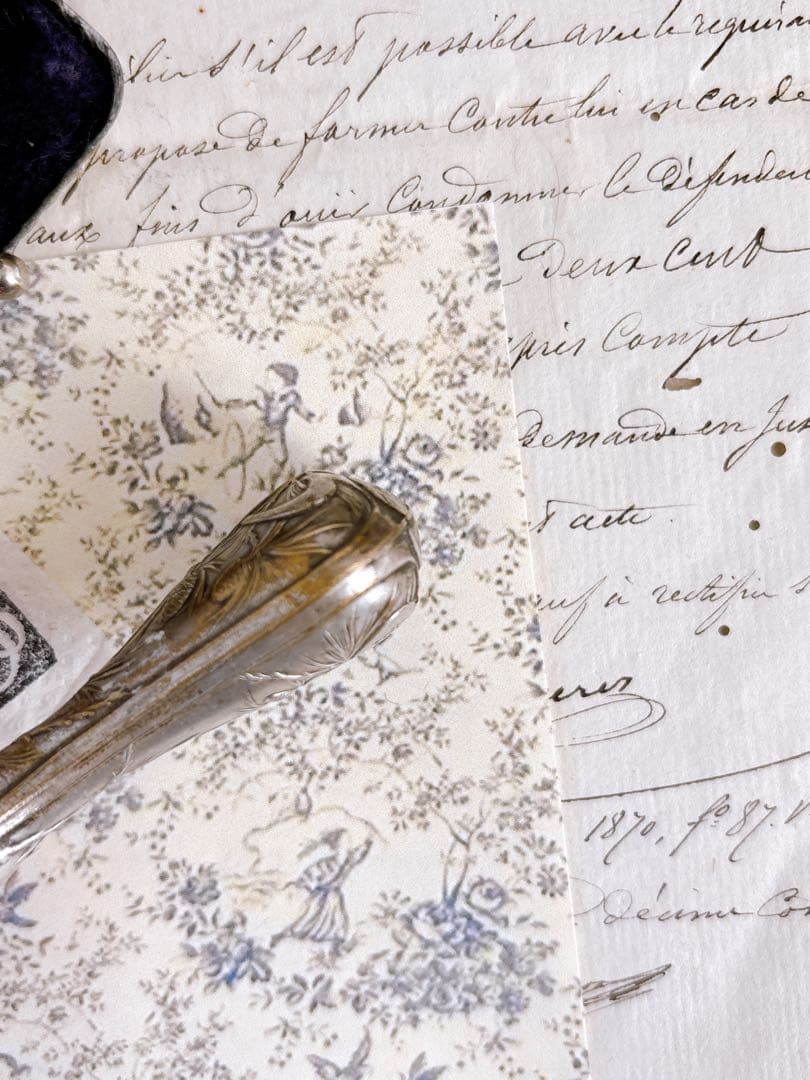 s'il est possible avec le requéra
propose de former contre lui en cas de
aux fins d'ouir condamner le défendeu
Deux cent
près compte
demande en Jus
t acte.
auf à rectifier s
1870, f° 87. V
décime Co